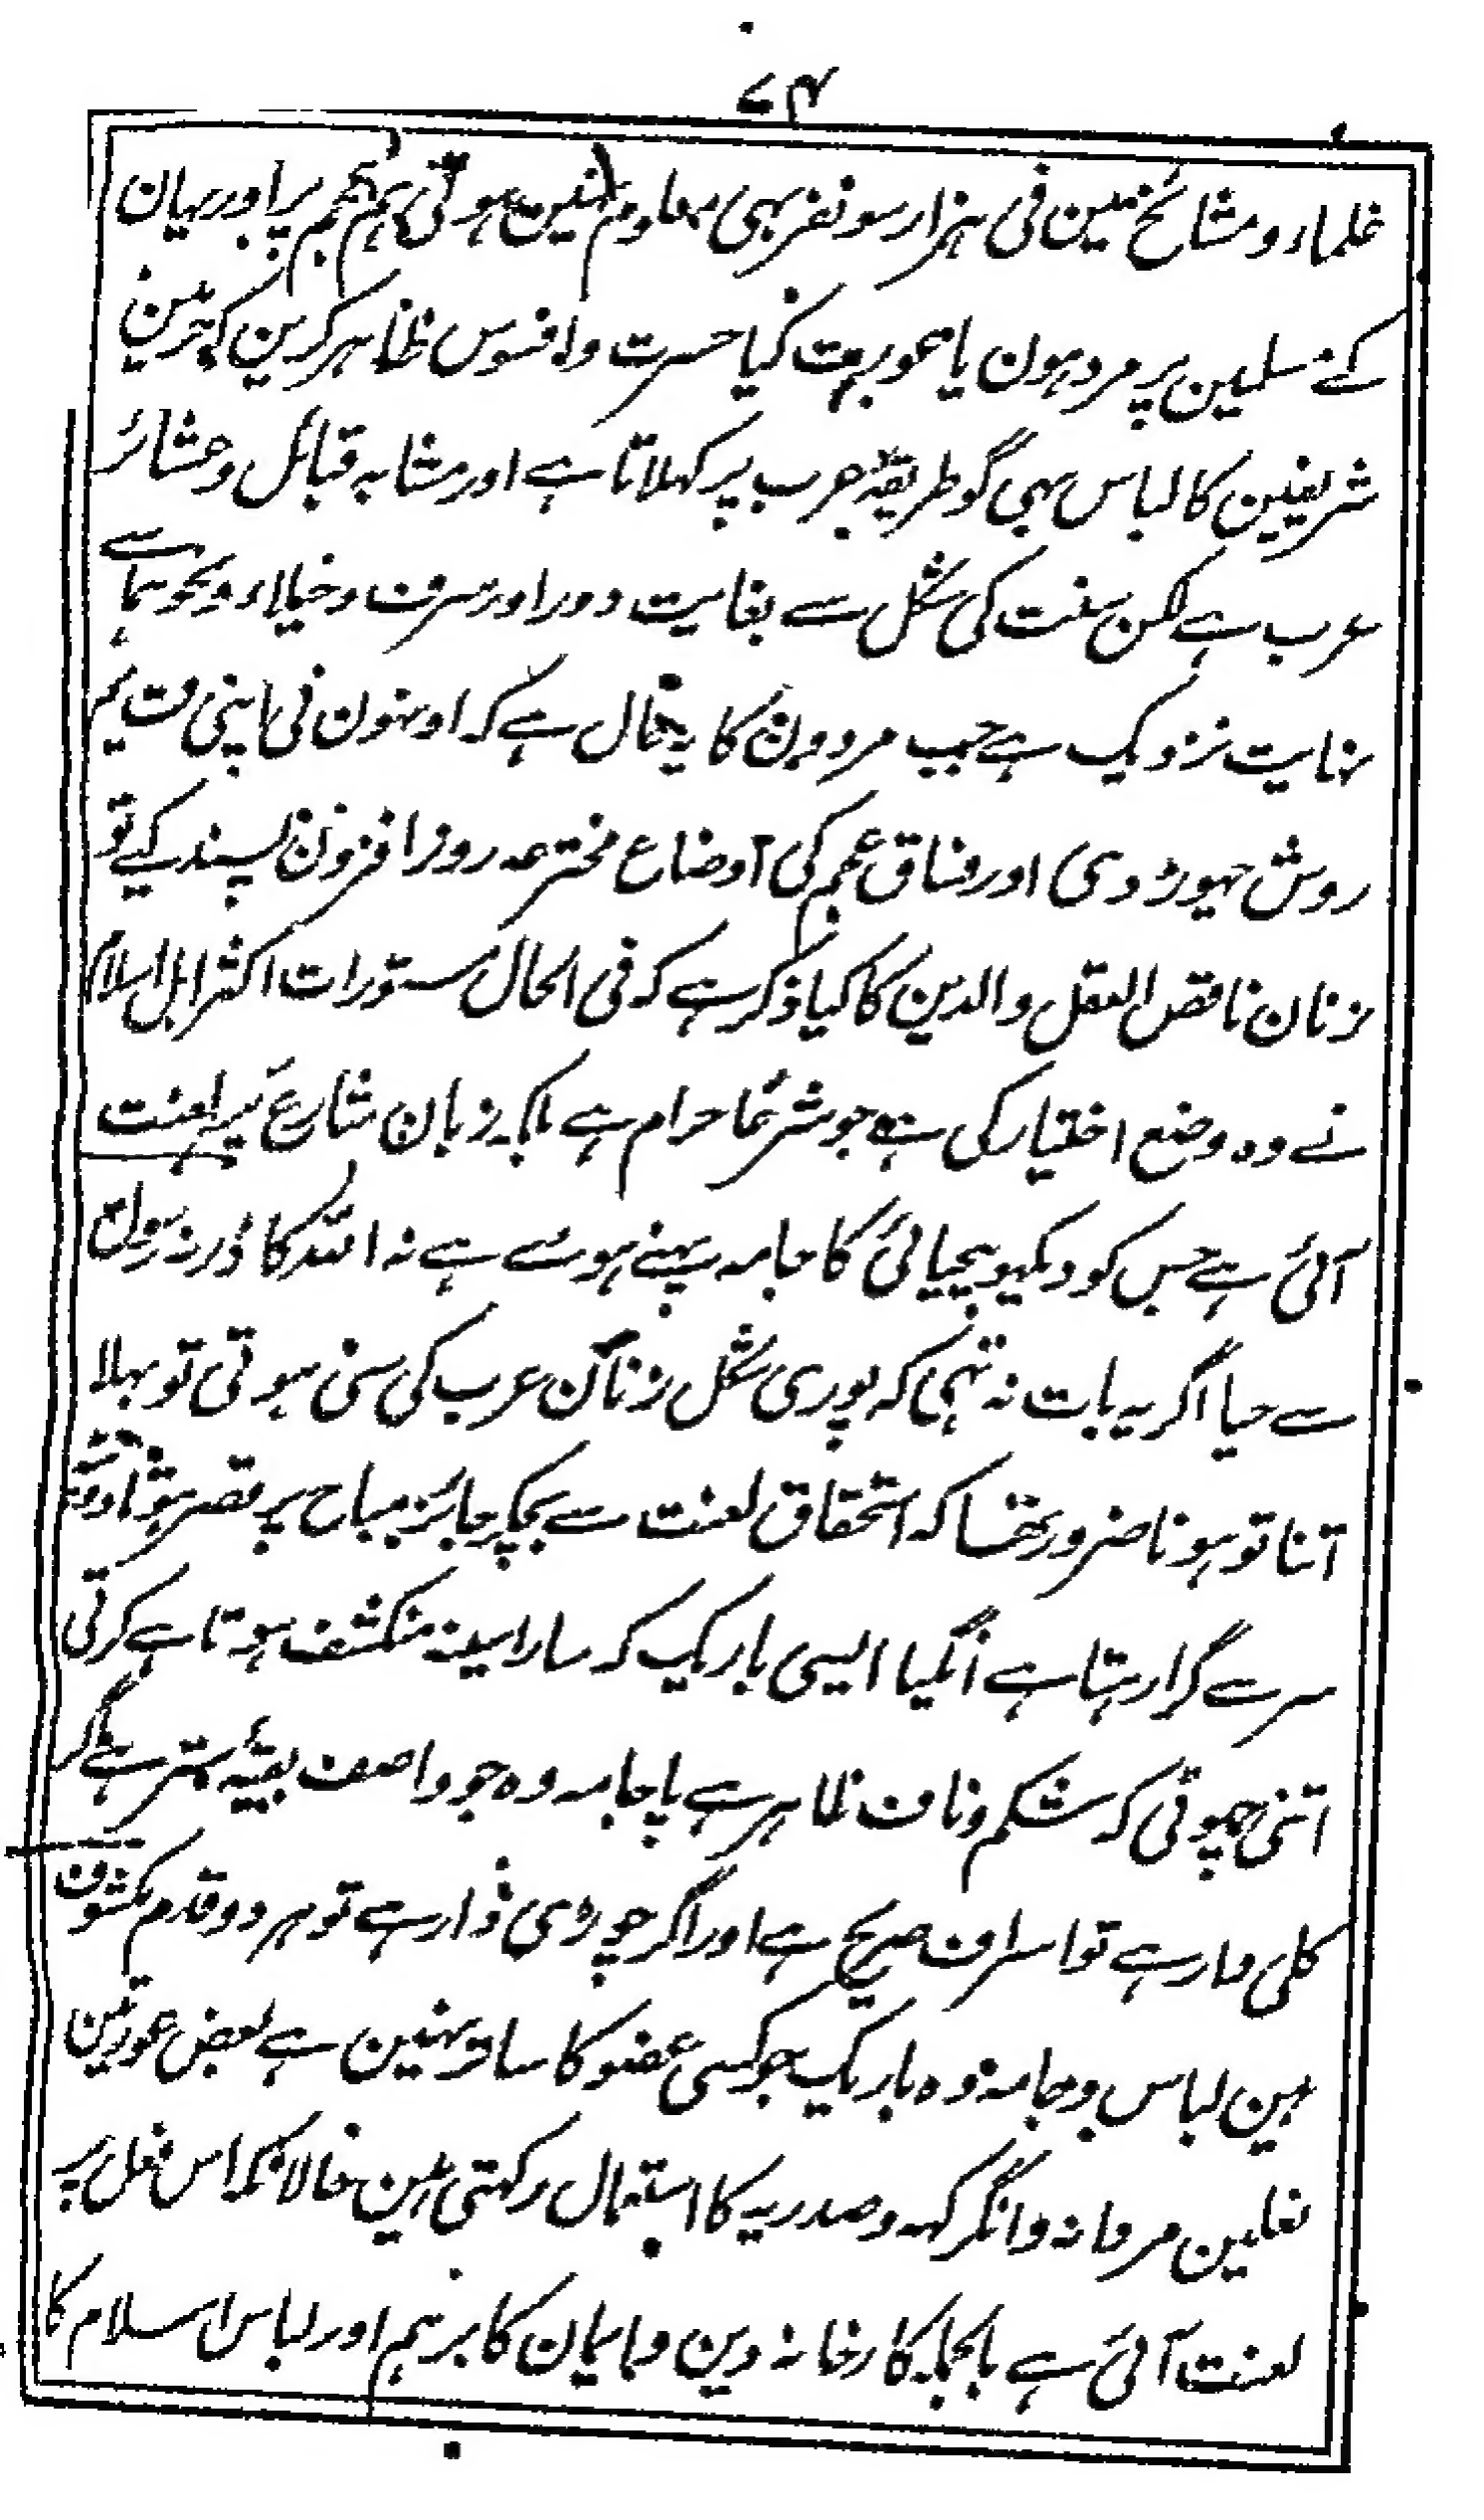 ۷۴
علماء و مشائخ مین فی ہزار سو نفر بہی معلوم نہین ہوتی ہم عجم پر اور یہان
کے مسلمین پر مرد ہون یا عورت کیا حسرت و افسوس ظاہر کرین کہ حرمین
شریفین کا لباس بہی گو طریقہ عرب پر کہلاتا ہے اور مشابہ قبائل و عشائر
عرب ہے لکن سنت کی شکل سے بغایت دور اور سرف و خیلاء و نحوہما سے
نہایت نزدیک ہے جب مردون کا یہ حال ہے کہ اونہون فی اپنی قدیم
روش چہوڑ دی اور فساق عجم کی اوضاع مخترعہ روز افزون پسند کیے تو
زنان ناقص العقل والدین کا کیا ذکر ہے کہ فی الحال مستورات اکثر اہل اسلام
نے وہ وضع اختیار کی ہے جو شرعًا حرام ہے بلکہ زبان شارع پر لعنت
آئی ہے جس کو دیکہو بیحیائی کا جامہ پہنے ہوے ہے نہ اللہ کا ڈر نہ رسول
سے حیا اگر یہ بات نہ تہی کہ پوری شکل زنان عرب کی سی ہوتی تو بہلا
اتنا تو ہونا ضرور تھا کہ استحقاق لعنت سے بچکر جائز مباح پر مقتصر ہوتین دوپٹہ
سر سے گرا رہتا ہے انگیا ایسی باریک کہ سارا سینہ منکشف ہوتا ہے کرتی
اتنی چہوٹی کہ شکم و ناف ظاہر ہے پاجامہ وہ جو واصف بقیہ ستر ہے اگر
کلی دار ہے تو اسراف صریح ہے اور اگر چوڑی دار ہے تو ہر دو قدم مکشوف
ہین لباس و جامہ وہ باریک جو کسی عضو کا ساتر نہین ہے بعض عورتین
نعلین مردانہ و انگرکہہ و صدریہ کا استعمال رکہتی ہین حالانکہ اس فعل پر
لعنت آئی ہے بالجملہ کارخانہ دین و ایمان کا برہم اور لباس اسلام کا